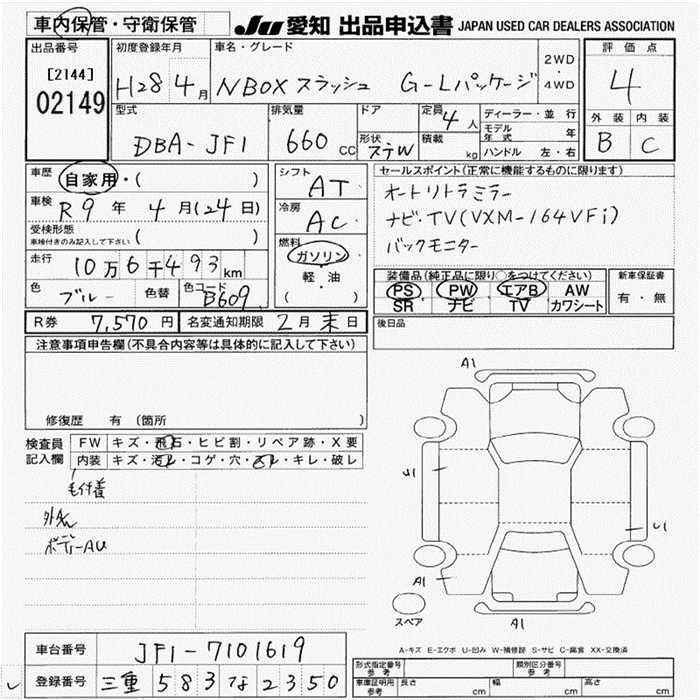 車内保管・守衛保管 JU 愛知 出品申込書 JAPAN USED CAR DEALERS ASSOCIATION
出品番号 初度登録年月 車名・グレード 2WD・4WD 評価点
[2144] 02149 H28 4月 NBOXスラッシュ G-Lパッケージ 4
型式 排気量 ドア 定員 4人 ディーラー・並行 外装 内装
DBA-JF1 660cc 形状 ステW 積載 kg モデル年式 年 B C
ハンドル 左・右
車歴 自家用・( ) シフト AT セールスポイント(正常に機能するものに限ります)
車検 R9年 4月(24日) 冷房 AC オートリトラミラー
受検形態 車検付きのみ記入して下さい ( ) 燃料 ガソリン ナビ・TV(VXM-164VFi)
走行 10万6千493km 軽・油 バックモニター
色 ブルー 色替 色コード B609 ( ) 装備品(純正品に限り○をつけてください) 新車保証書
PS PW エアB AW 有・無
SR ナビ TV カワシート
R券 7,570円 名変通知期限 2月末日 後日品
注意事項申告欄(不具合内容等は具体的に記入して下さい)
修復歴 有 (箇所 )
検査員記入欄 FW キズ・飛石・ヒビ割・リペア跡・X要
内装 キズ・汚レ・コゲ・穴・スレ・キレ・破レ
毛付着
ボデーAU
A1
U1
U1
A1
スペア A1
A-キズ E-エクボ U-凹み W-補修跡 S-サビ C-腐食 XX-交換済
車台番号 JF1-7101619
登録番号 三重 583 な 2350
形式指定番号 参考 類別区分番号 参考
車庫証明用 参考 長さ cm 幅 cm 高さ cm